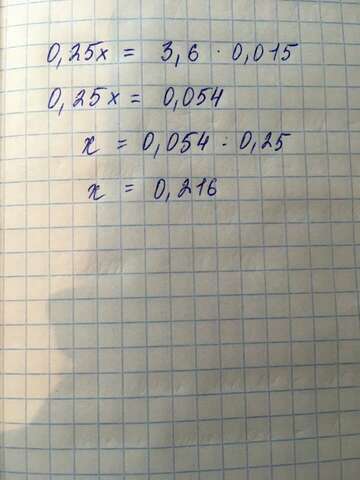 0,25x = 3,6 · 0,015
0,25x = 0,054
x = 0,054 : 0,25
x = 0,216